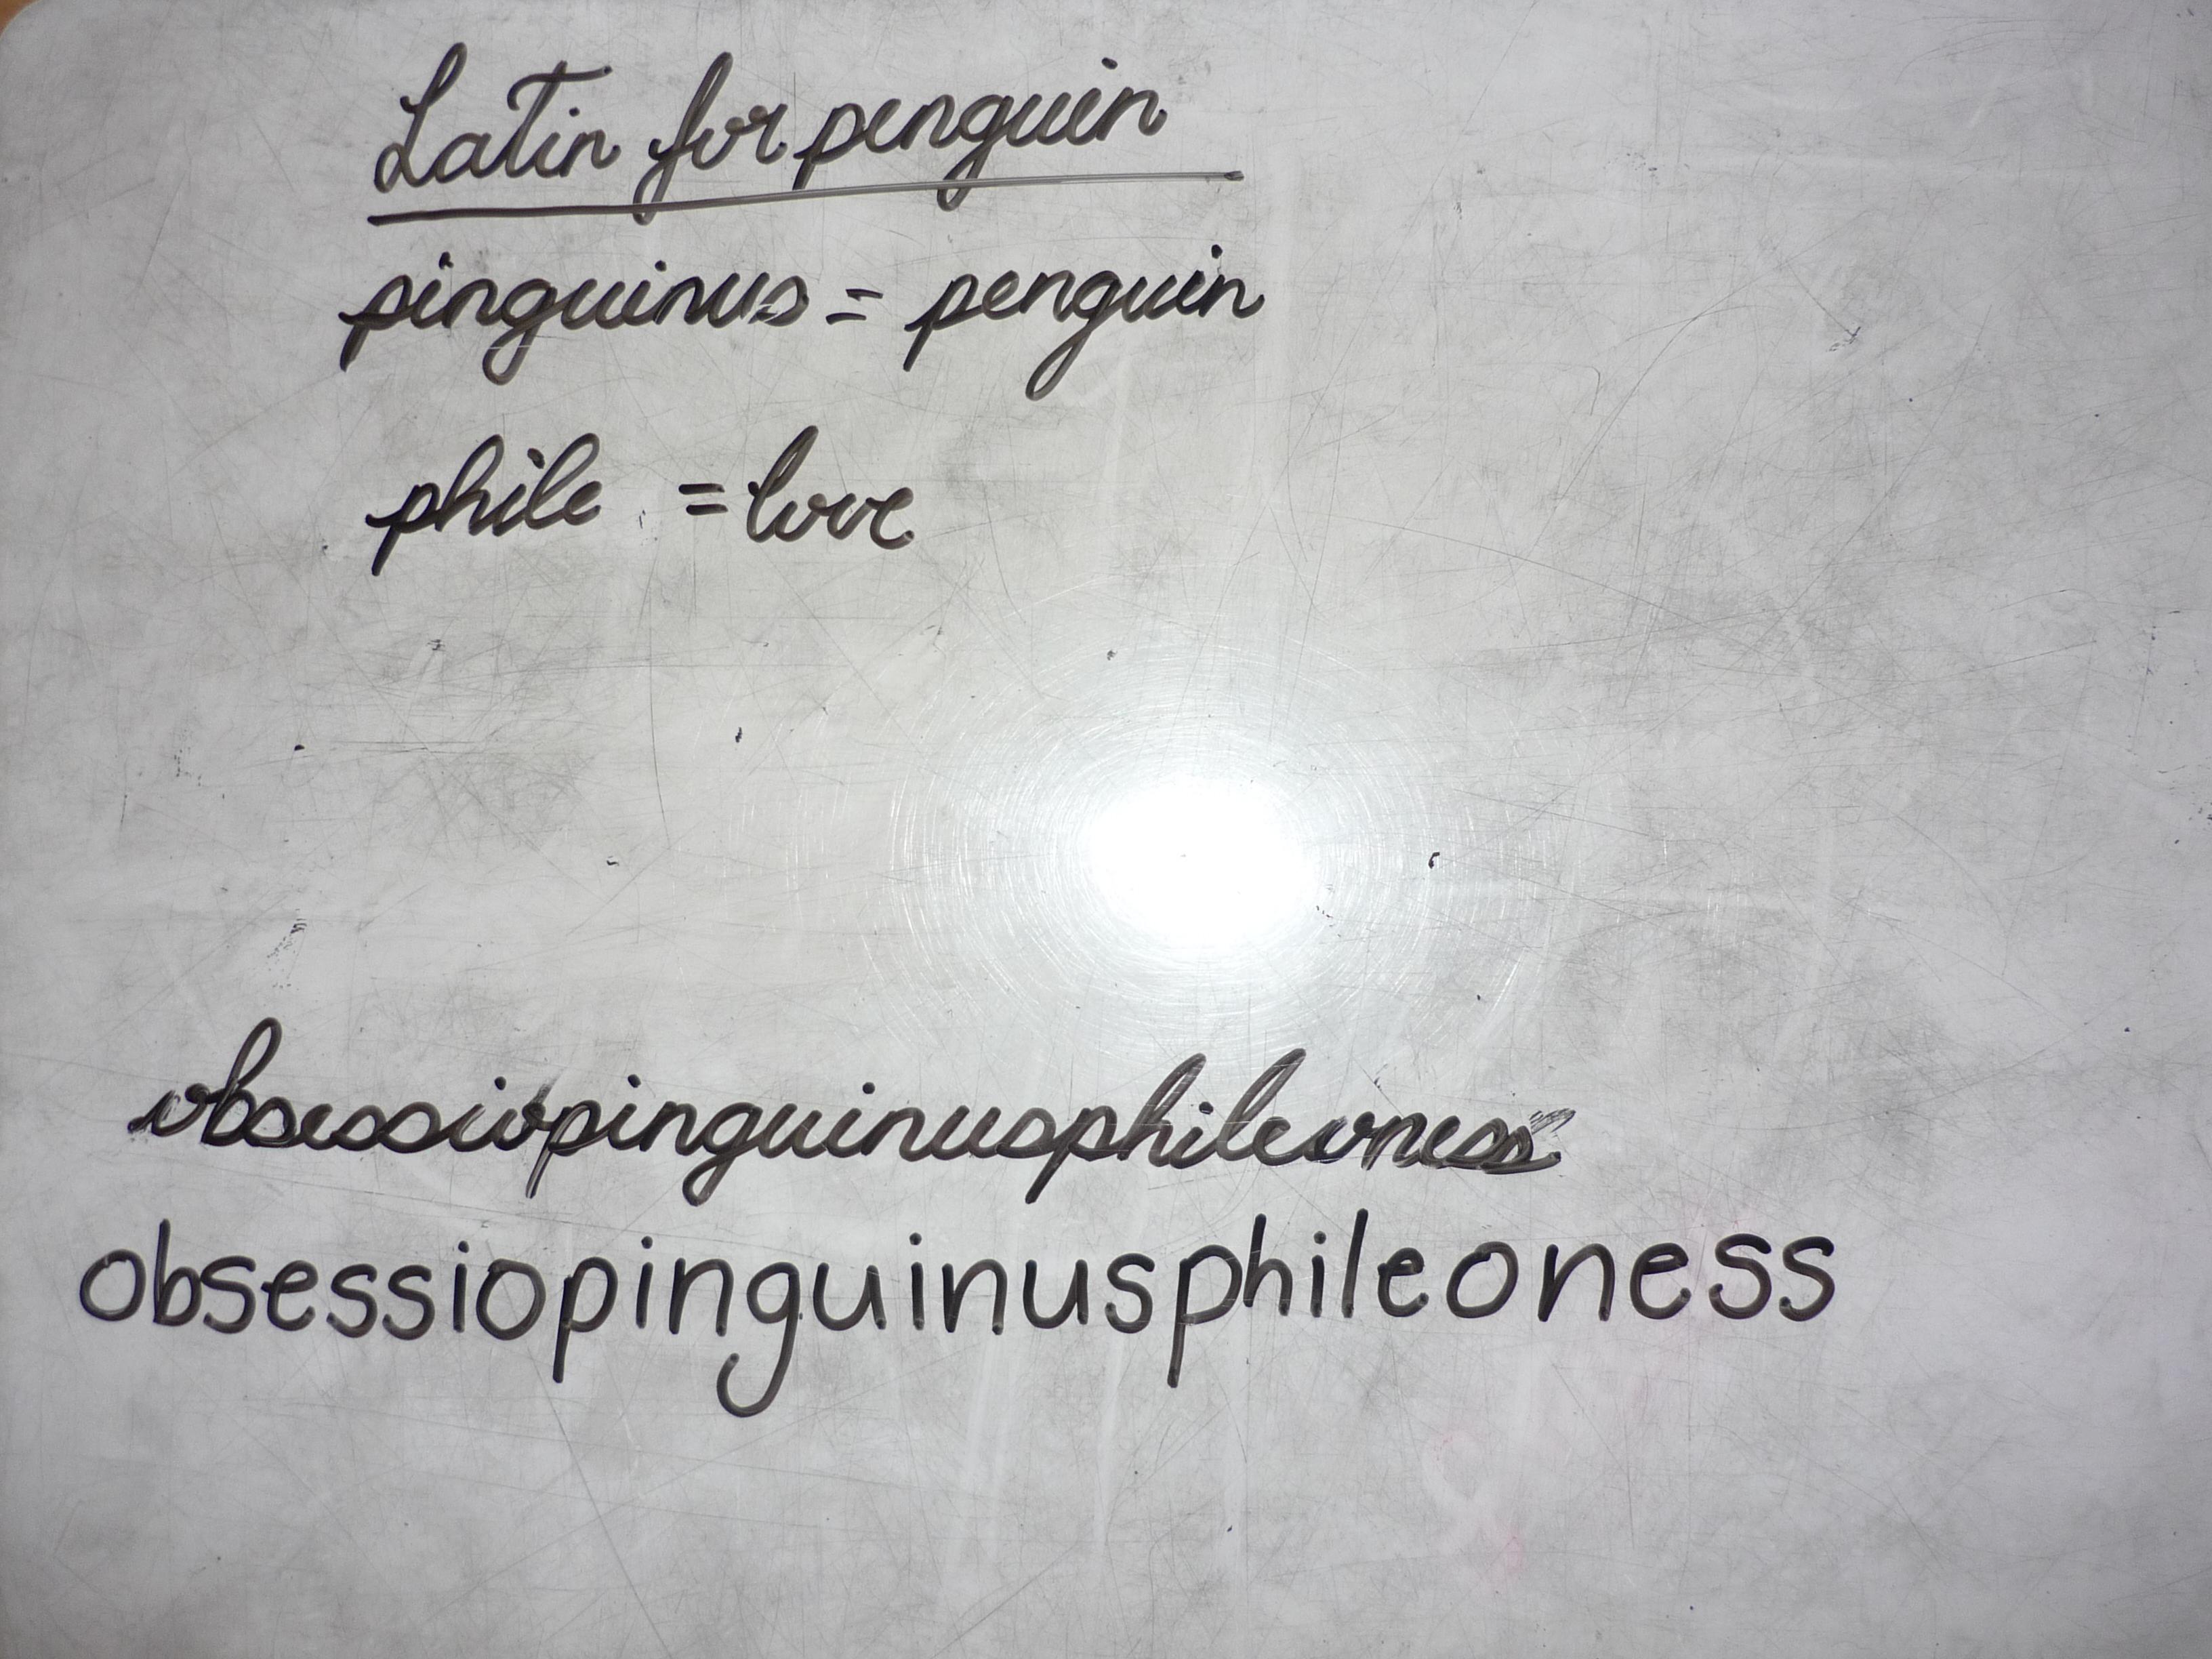 Latin for penguin
pinguinus = penguin
phile = love
obsessiopinguinusphileoness
obsessiopinguinusphileoness